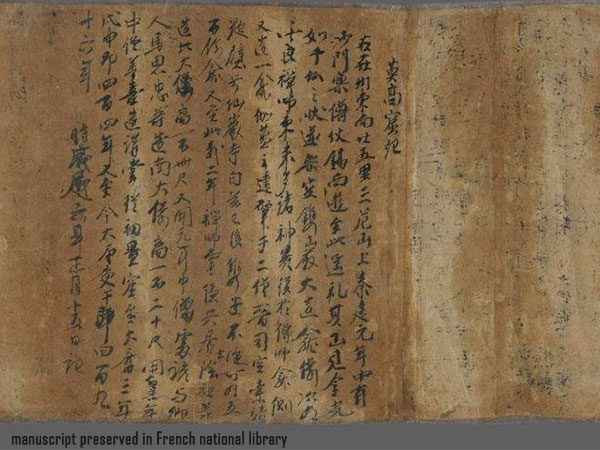 莫高窟記
右在州東南廿五里三危山上秦建元年中有
沙門樂僔仗錫西遊至此遙礼其山見金光
如千佛之狀遂架空鐫巖大造龕像次有
法良禪師東來多諸神異復於僔師龕側
又造一龕伽藍之建肇于二僧晉司空索靖
題壁号仙巖寺自茲已後鐫造不絕可有五
百餘龕又至延載二年禪師靈隱共居士陰祖等
造北大像高一百卌尺又開元年中僧處諺与鄉
人馬思忠等造南大像高一百二十尺開皇年
中僧善喜造講堂從初置窟至大曆三年
戊申即四百四年又至今大唐庚午即四百九
十六年 時咸通六年正月十五日記
manuscript preserved in French national library